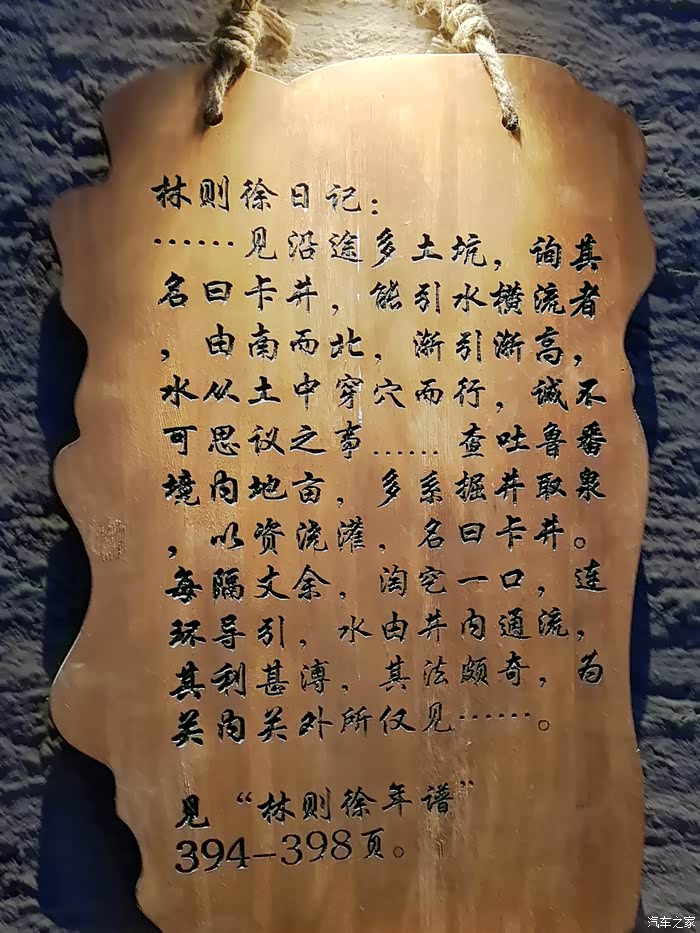 林则徐日记：
……见沿途多土坑，询其
名曰卡井，能引水横流者
，由南而北，渐引渐高，
水从土中穿穴而行，诚不
可思议之事……查吐鲁番
境内地亩，多系掘井取泉
，以资浇灌，名曰卡井。
每隔丈余，淘宅一口，连
环导引，水由井内通流，
其利甚溥，其法颇奇，为
关内关外所仅见……。
见“林则徐年谱”
394-398页。
汽车之家